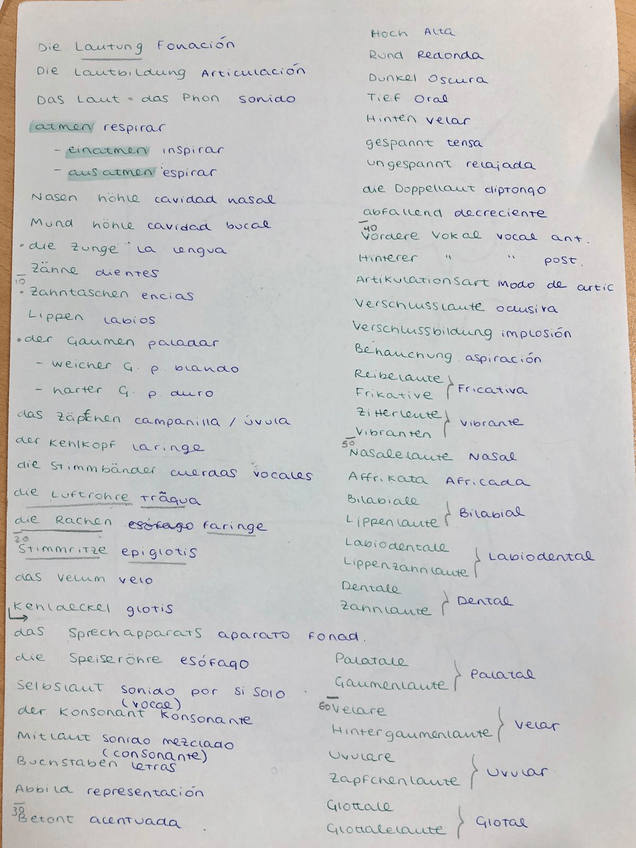 Die Lautung Fonación
Die Lautbildung Articulación
Das Laut = das Phon sonido
atmen respirar
- einatmen inspirar
- ausatmen espirar
Nasen höhle cavidad nasal
Mund höhle cavidad bucal
• die Zunge la lengua
Zähne dientes
10
• Zahntaschen encias
Lippen labios
• der Gaumen paladar
- weicher G. p. blando
- harter G. p. duro
das Zäpfchen campanilla / úvula
der Kehlkopf laringe
die Stimmbänder cuerdas vocales
die Luftröhre tráqua
die Rachen esófago faringe
20
Stimmritze epiglotis
das velum velo
Kehldeckel glotis
das Sprechapparats aparato fonad.
die Speiseröhre esófago
Selbslaut sonido por si solo
(vocal)
der Konsonant Konsonante
Mitlaut sonido mezclado
(consonante)
Buchstaben letras
Abbild representación
30
Betont acentuada
Hoch Alta
Rund Redonda
Dunkel Oscura
Tief Oral
Hinten velar
gespannt tensa
ungespannt relajada
die Doppellaut diptongo
abfallend decreciente
40
Vordere Vokal vocal ant.
Hinterer " " post.
Artikulationsart Modo de artic
Verschlusslaute oclusiva
Verschlussbildung implosión
Behauchung aspiración
Reibelaute
Frikative } Fricativa
Zitterlaute
Vibranten } vibrante
50
Nasalelaute Nasal
Affrikata Africada
Bilabiale
Lippenlaute } Bilabial
Labiodentale
Lippenzahnlaute } Labiodental
Dentale
Zahnlaute } Dental
Palatale
Gaumenlaute } Palatal
60
Velare
Hintergaumenlaute } Velar
Uvulare
Zäpfchenlaute } Uvular
Glottale
Glottalelaute } Glotal